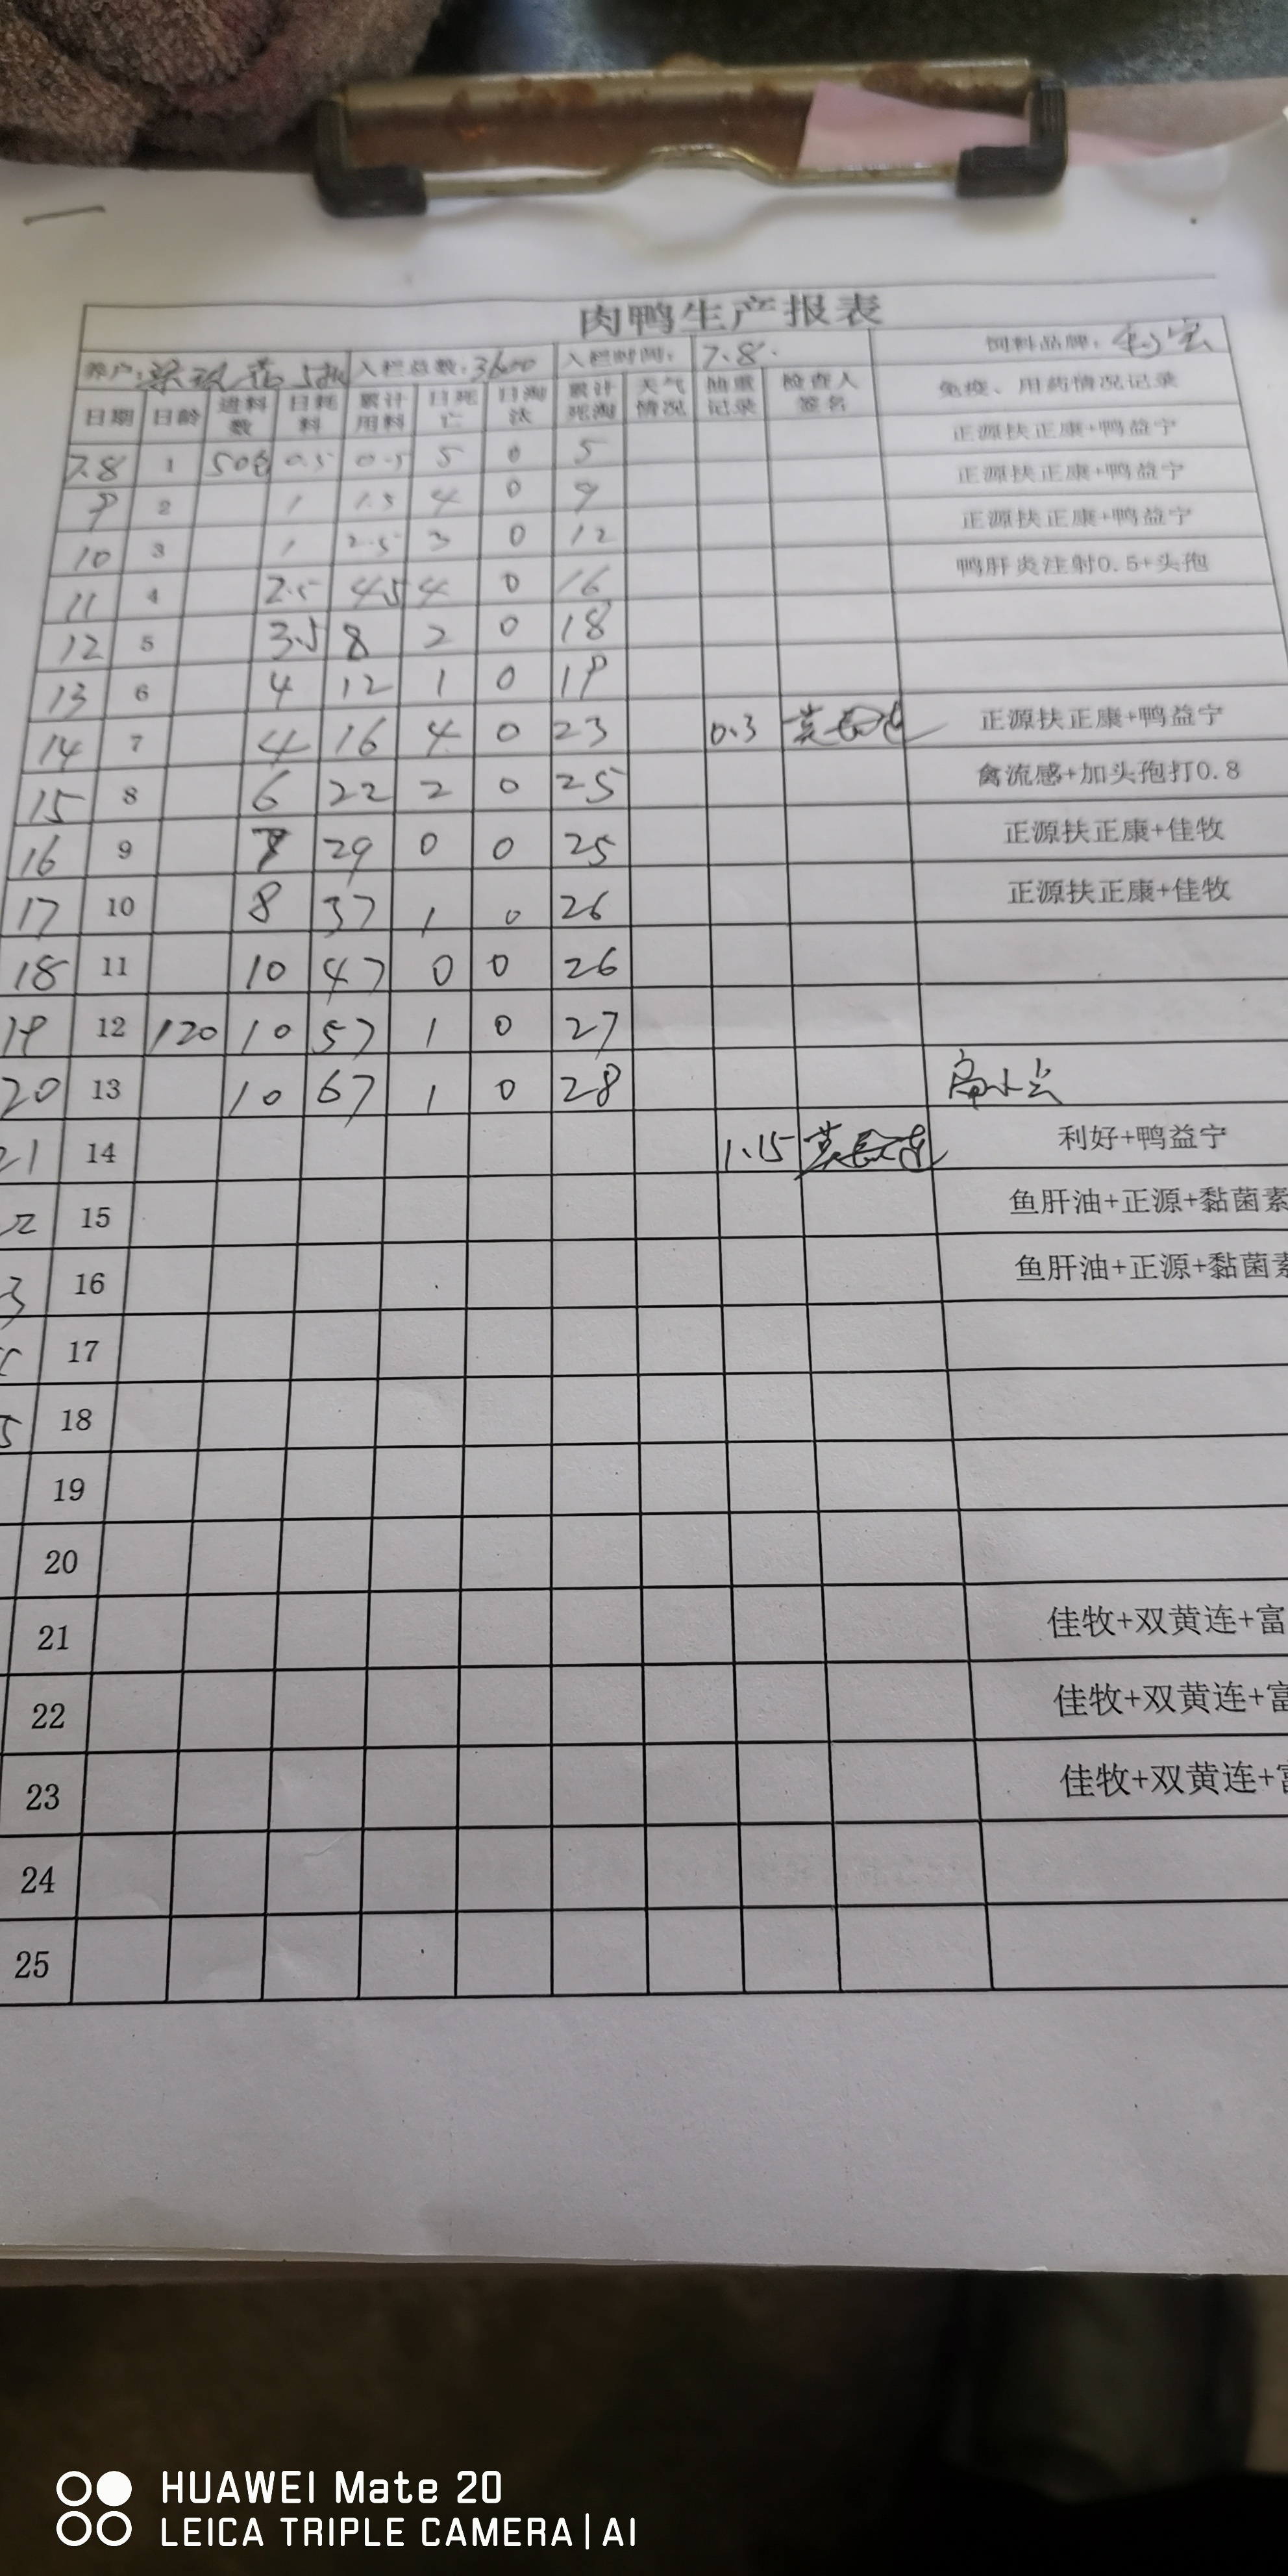 肉鸭生产报表
养户: 入栏总数:3600 入栏时间: 7.8. 饲料品牌:
日期 日龄 进料数 日耗料 累计用料 日死亡 日淘汰 累计死淘 天气情况 抽重记录 检查人签名 免疫、用药情况记录
7.8 1 50包 0.5 0.5 5 0 5 正源扶正康+鸭益宁
9 2 1 1.5 4 0 9 正源扶正康+鸭益宁
10 3 1 2.5 3 0 12 正源扶正康+鸭益宁
11 4 2.5 4.5 4 0 16 鸭肝炎注射0.5+头孢
12 5 3.5 8 2 0 18
13 6 4 12 1 0 19
14 7 4 16 4 0 23 0.3 正源扶正康+鸭益宁
15 8 6 22 2 0 25 禽流感+加头孢打0.8
16 9 7 29 0 0 25 正源扶正康+佳牧
17 10 8 37 1 0 26 正源扶正康+佳牧
18 11 10 47 0 0 26
19 12 120 10 57 1 0 27
20 13 10 67 1 0 28
21 14 1.15 利好+鸭益宁
15 鱼肝油+正源+黏菌素
16 鱼肝油+正源+黏菌素
17
18
19
20
21 佳牧+双黄连+富
22 佳牧+双黄连+富
23 佳牧+双黄连+富
24
25
HUAWEI Mate 20
LEICA TRIPLE CAMERA | AI